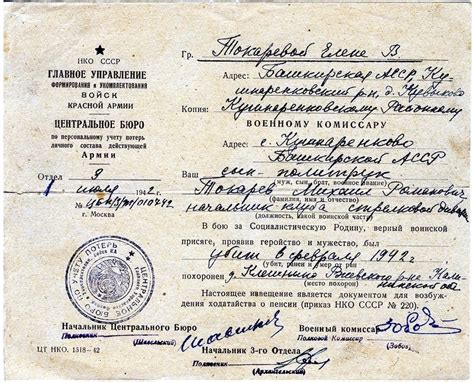 НКО СССР
ГЛАВНОЕ УПРАВЛЕНИЕ
ФОРМИРОВАНИЯ и УКОМПЛЕКТОВАНИЯ
ВОЙСК
КРАСНОЙ АРМИИ
ЦЕНТРАЛЬНОЕ БЮРО
по персональному учету потерь
личного состава действующей
Армии
Отдел 9
1 июля 1942 г.
№
г. Москва
ЦЕНТРАЛЬНОЕ БЮРО ПО УЧЕТУ ПОТЕРЬ
Гр. Токаревой Елене В
Адрес: Башкирская АССР, Куш
наренковский р-н, д.
Копия: Кушнаренковскому Районному
ВОЕННОМУ КОМИССАРУ
Адрес: с. Кушнаренково
Башкирской АССР
Ваш сын политрук
(муж, сын, брат, военное звание)
Токарев Михаил Романович
(фамилия, имя и отчество)
начальник клуба стрелковой дивиз
(должность, какой воинской части)
В бою за Социалистическую Родину, верный воинской
присяге, проявив геройство и мужество, был
убит 6 февраля 1942 г.
(убит, ранен и умер от ран)
похоронен д. Клешнино Ржевского р-не Кали
(место похорон)
нинской об
Настоящее извещение является документом для возбуж-
дения ходатайства о пенсии (приказ НКО СССР № 220).
Начальник Центрального Бюро
Полковник (Шавельский)
Военный комиссар
Полковой Комиссар (Зобов)
Начальник 3-го Отдела
Полковник (Архангельский)
ЦТ НКО. 1518-42